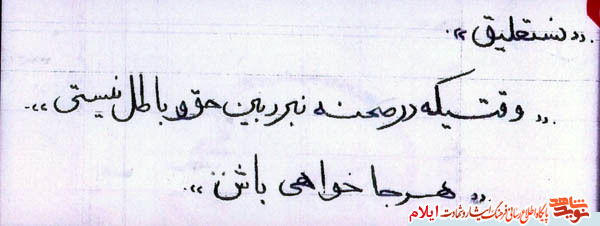 .,, نستعلیق ,,.
,, وقتیکه در صحنه نبرد بین حق و باطل نیستی ,,
,, هر جا خواهی باش ,,
شاهد
نوید
پایگاه اطلاع رسانی فرهنگ ایثار و شهادت ایلام